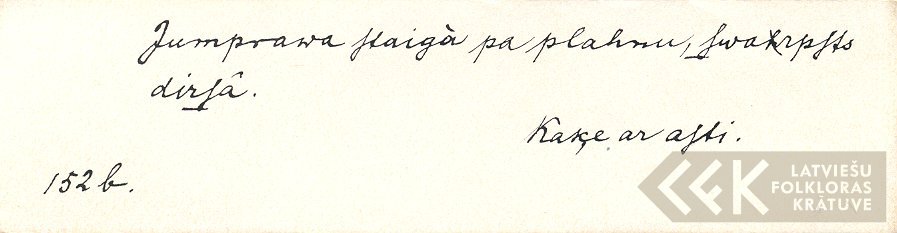 Jumprawa ſtaigà pa plahnu, ſwahrpſts
dirſâ.
Kaķe ar aſti.
152 b.
LATVIEŠU
FOLKLORAS
KRĀTUVE